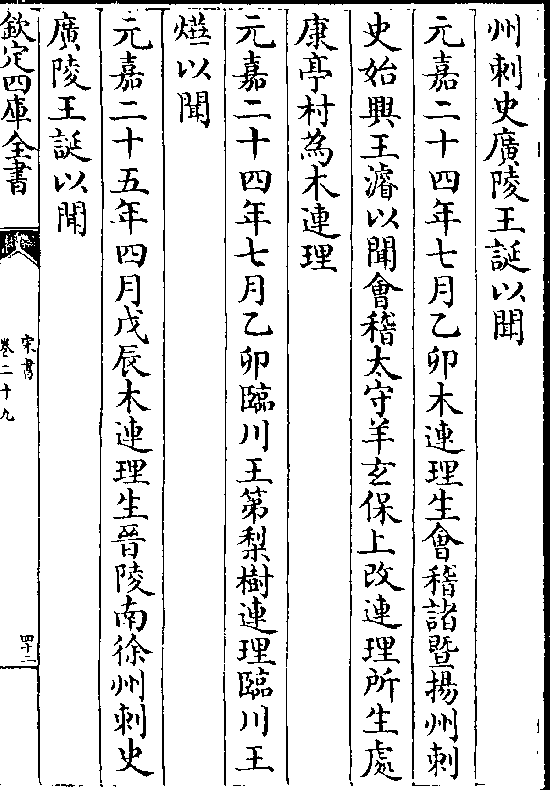 州刺史廣陵王誕以聞
元嘉二十四年七月乙卯木連理生會稽諸暨揚州刺
史始興王濬以聞會稽太守羊玄保上改連理所生處
康亭村為木連理
元嘉二十四年七月乙卯臨川王第梨樹連理臨川王
燁以聞
元嘉二十五年四月戊辰木連理生晉陵南徐州刺史
廣陵王誕以聞
欽定四庫全書
宋書
卷二十九
四十二